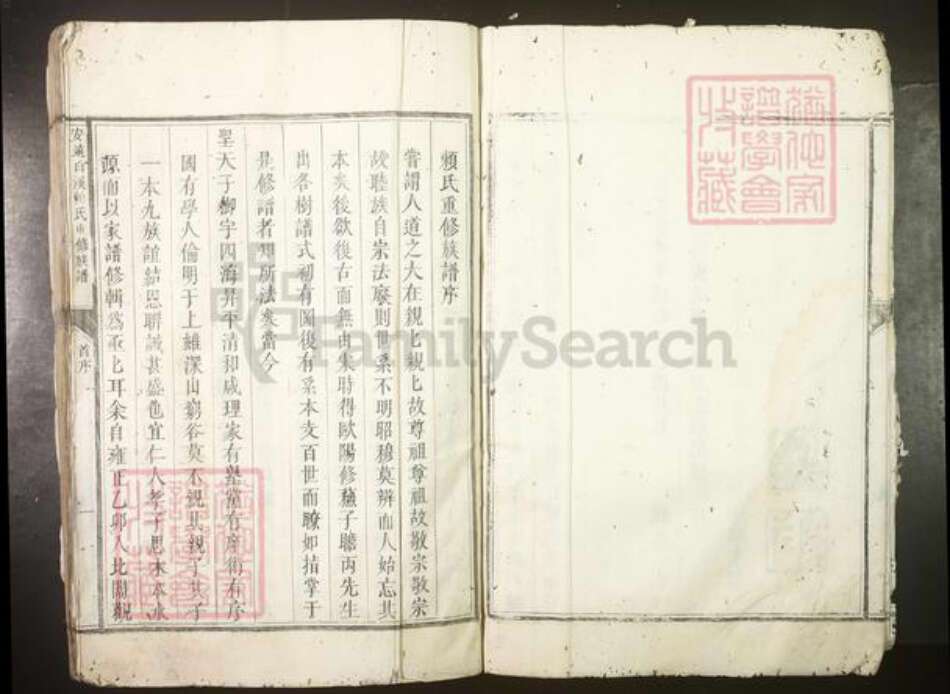 賴氏重修族譜序
嘗謂人道之大在親匕親匕故尊祖尊祖故敬宗敬宗
故聽族自宗法廢則世系不明昭穆莫辨而人始忘其
本矣後欲復古而無由朱時得歐陽修蘇子瞻丙先生
出各樹譜式初有圖後有系本支百世而瞭如指掌于
是修譜者知所法矣當今
聖天子御宇四海昇平清和咸理家有塾黨有庠術有序
國有學人倫明于上雖深山窮谷莫不親其親子其子
一本九族誼結恩聯誠甚盛也宜仁人孝子思木本水
源而以家譜修輯為亟匕耳余自雍正乙卯入北闈觀
氏重修族譜
首序
一
FamilySearch